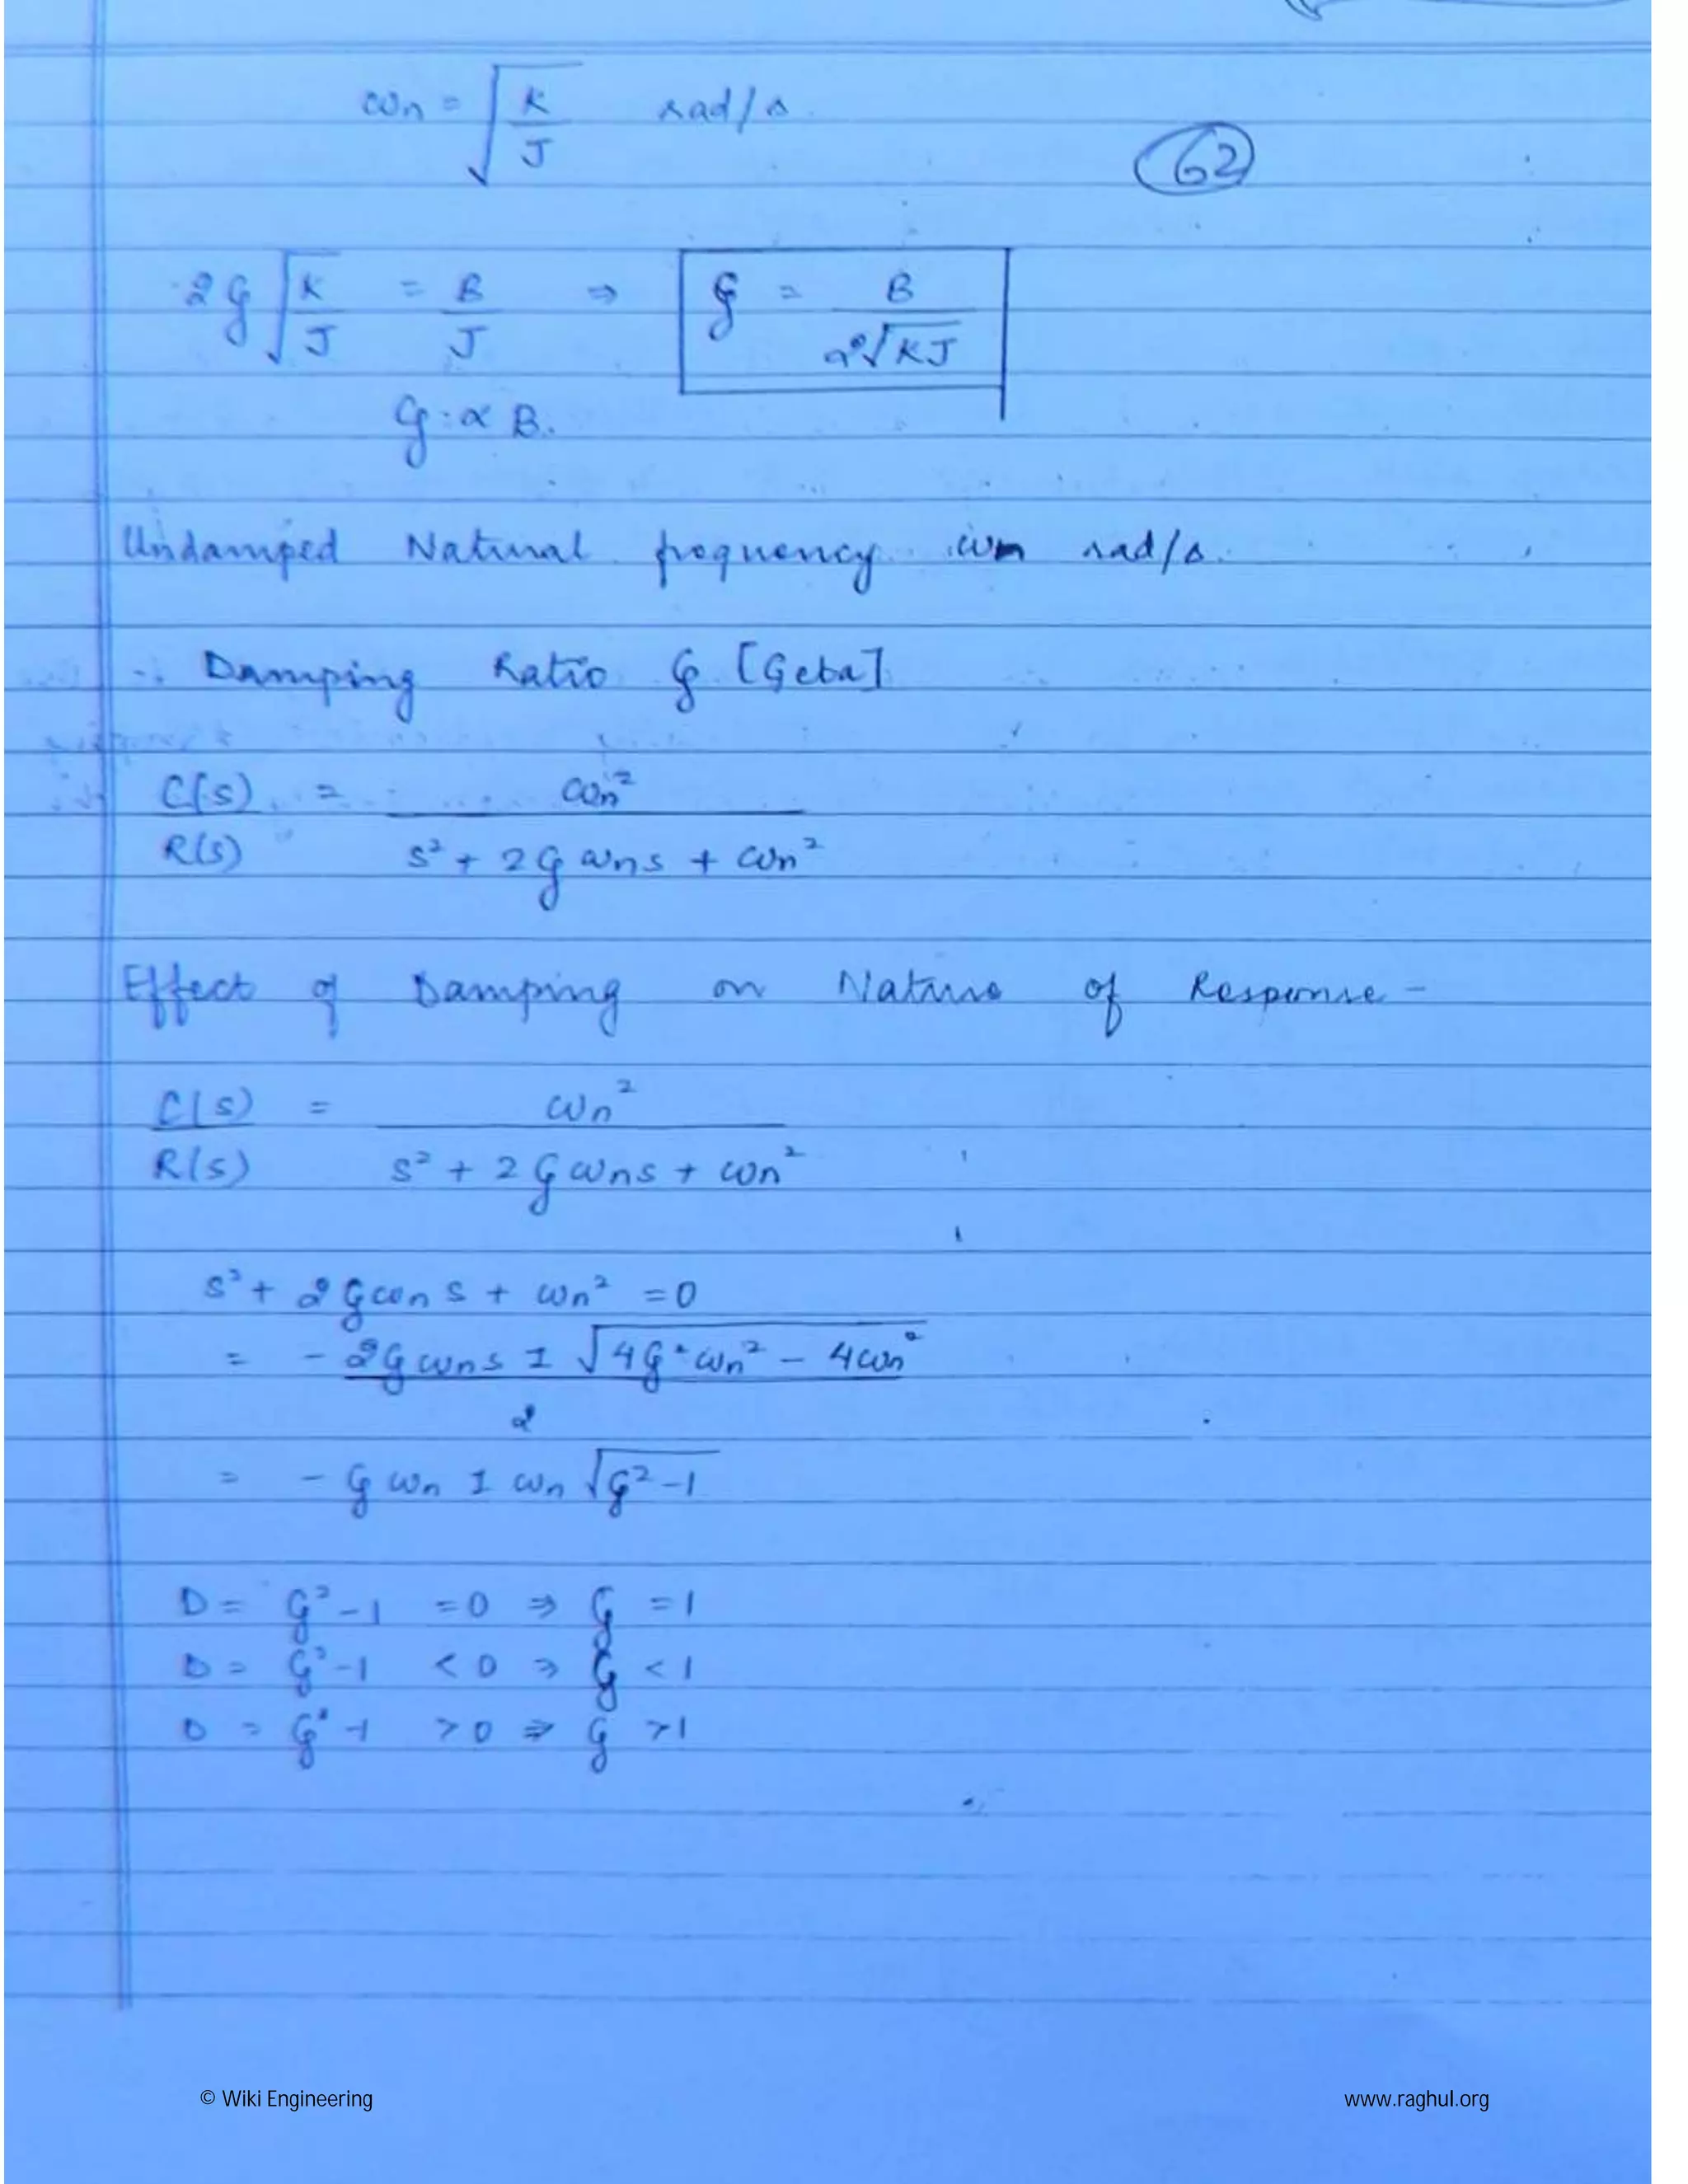 ωn = √(K/J) rad/s.
62
2ξ √(K/J) = B/J ⇒ ξ = B/(2√KJ)
ξ ∝ B.
Undamped Natural frequency ωn rad/s.
Damping Ratio ξ [Geba]
C(s)/R(s) = ωn²/(s² + 2ξωns + ωn²)
Effect of Damping on Nature of Response -
C(s)/R(s) = ωn²/(s² + 2ξωns + ωn²)
s² + 2ξωn s + ωn² = 0
= - 2ξωns ± √(4ξ²ωn² - 4ωn²) / 2
= - ξωn ± ωn √(ξ² - 1)
D = ξ² - 1 = 0 ⇒ ξ = 1
D = ξ² - 1 < 0 ⇒ ξ < 1
D = ξ² - 1 > 0 ⇒ ξ > 1
© Wiki Engineering
www.raghul.org